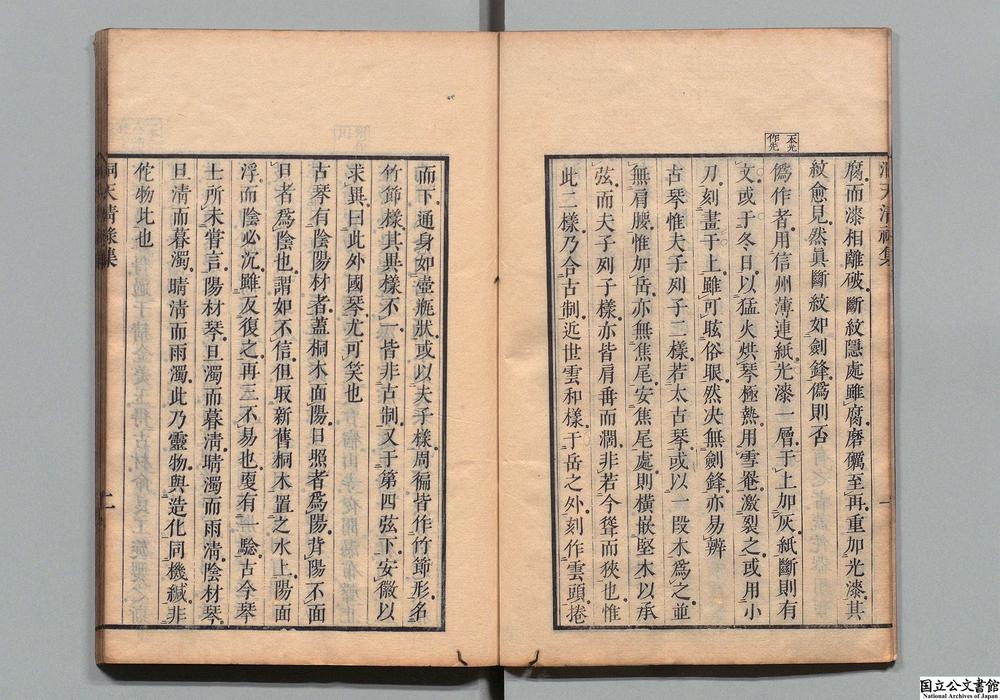 洞天清祿集
一
一本光
作先
腐而漆相離破斷紋隱處雖腐磨礪至再重加光漆其
紋愈見然眞斷紋如劍鋒僞則否
僞作者用信州薄連紙光漆一層于上加灰紙斷則有
文或于冬日以猛火烘琴極熱用雪罨激裂之或用小
刀刻畫于上雖可眩俗眼然決無劍鋒亦易辨
古琴惟夫子列子二樣若太古琴或以一段木爲之並
無肩腰惟加岳亦無焦尾安焦尾處則橫嵌堅木以承
弦而夫子列子樣亦皆肩垂而濶非若今聳而狹也惟
此二樣乃合古制近世雲和樣于岳之外刻作雲頭捲
而下通身如壺瓶狀或以夫子樣周徧皆作竹節形名
竹節樣其異樣不一皆非古制又于第四弦下安徽以
求異曰此外國琴尤可笑也
古琴有陰陽材者蓋桐木面陽日照者爲陽背陽不面
日者爲陰也謂如不信但取新舊桐木置之水上陽面
浮而陰必沉雖反復之再三不易也更有一驗古今琴
士所未嘗言陽材琴旦濁而暮清晴濁而雨清陰材琴
旦清而暮濁晴清而雨濁此乃靈物與造化同機緘非
佗物比也
洞天清祿集
二
国立公文書館
National Archives of Japan